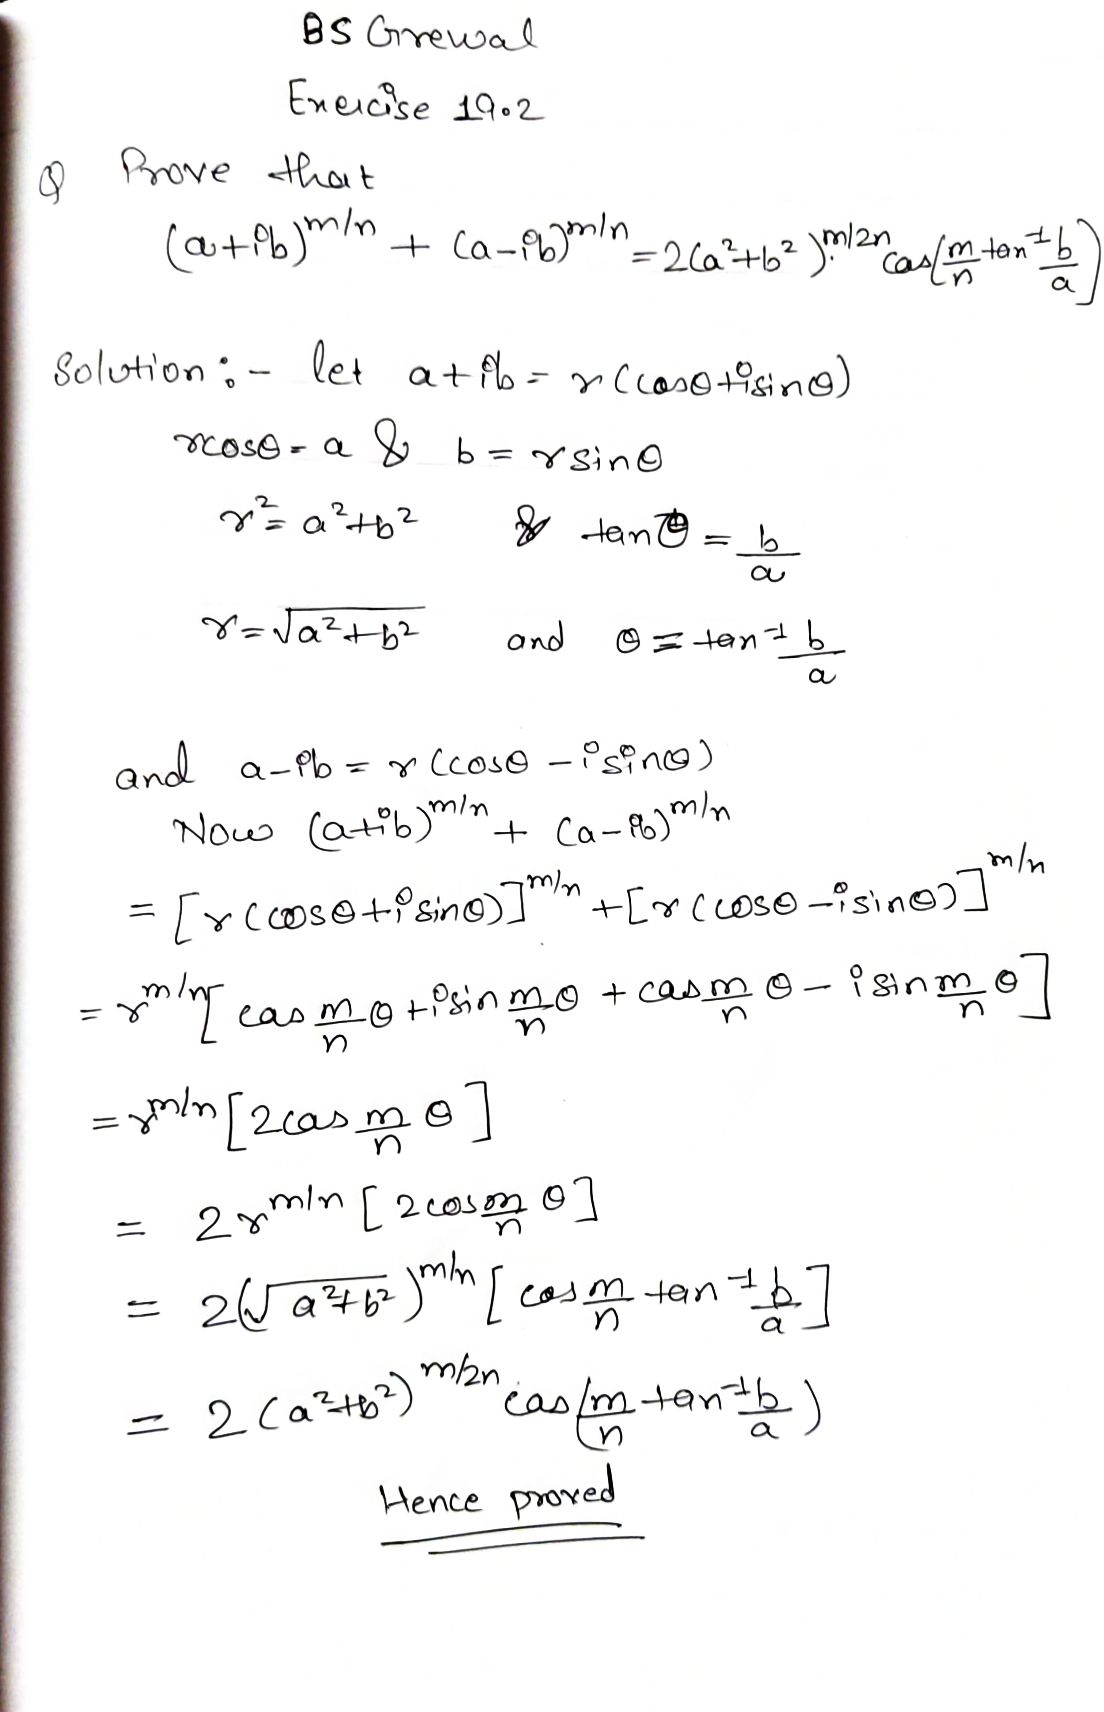 BS Grewal
Exercise 19.2
Q Prove that
(a+ib)^m/n + (a-ib)^m/n = 2(a²+b²)^m/2n cos(m/n tan⁻¹ b/a)
Solution :- let a+ib = r(cosθ+isinθ)
rcosθ = a & b = rsinθ
r² = a²+b² & tanθ = b/a
r = √(a²+b²) and θ = tan⁻¹ b/a
and a-ib = r(cosθ - isinθ)
Now (a+ib)^m/n + (a-ib)^m/n
= [r(cosθ+isinθ)]^m/n + [r(cosθ-isinθ)]^m/n
= r^m/n [cos m/n θ + isin m/n θ + cos m/n θ - isin m/n θ]
= r^m/n [2cos m/n θ]
= 2r^m/n [2cos m/n θ]
= 2(√(a²+b²))^m/n [cos m/n tan⁻¹ b/a]
= 2(a²+b²)^m/2n cos(m/n tan⁻¹ b/a)
Hence proved